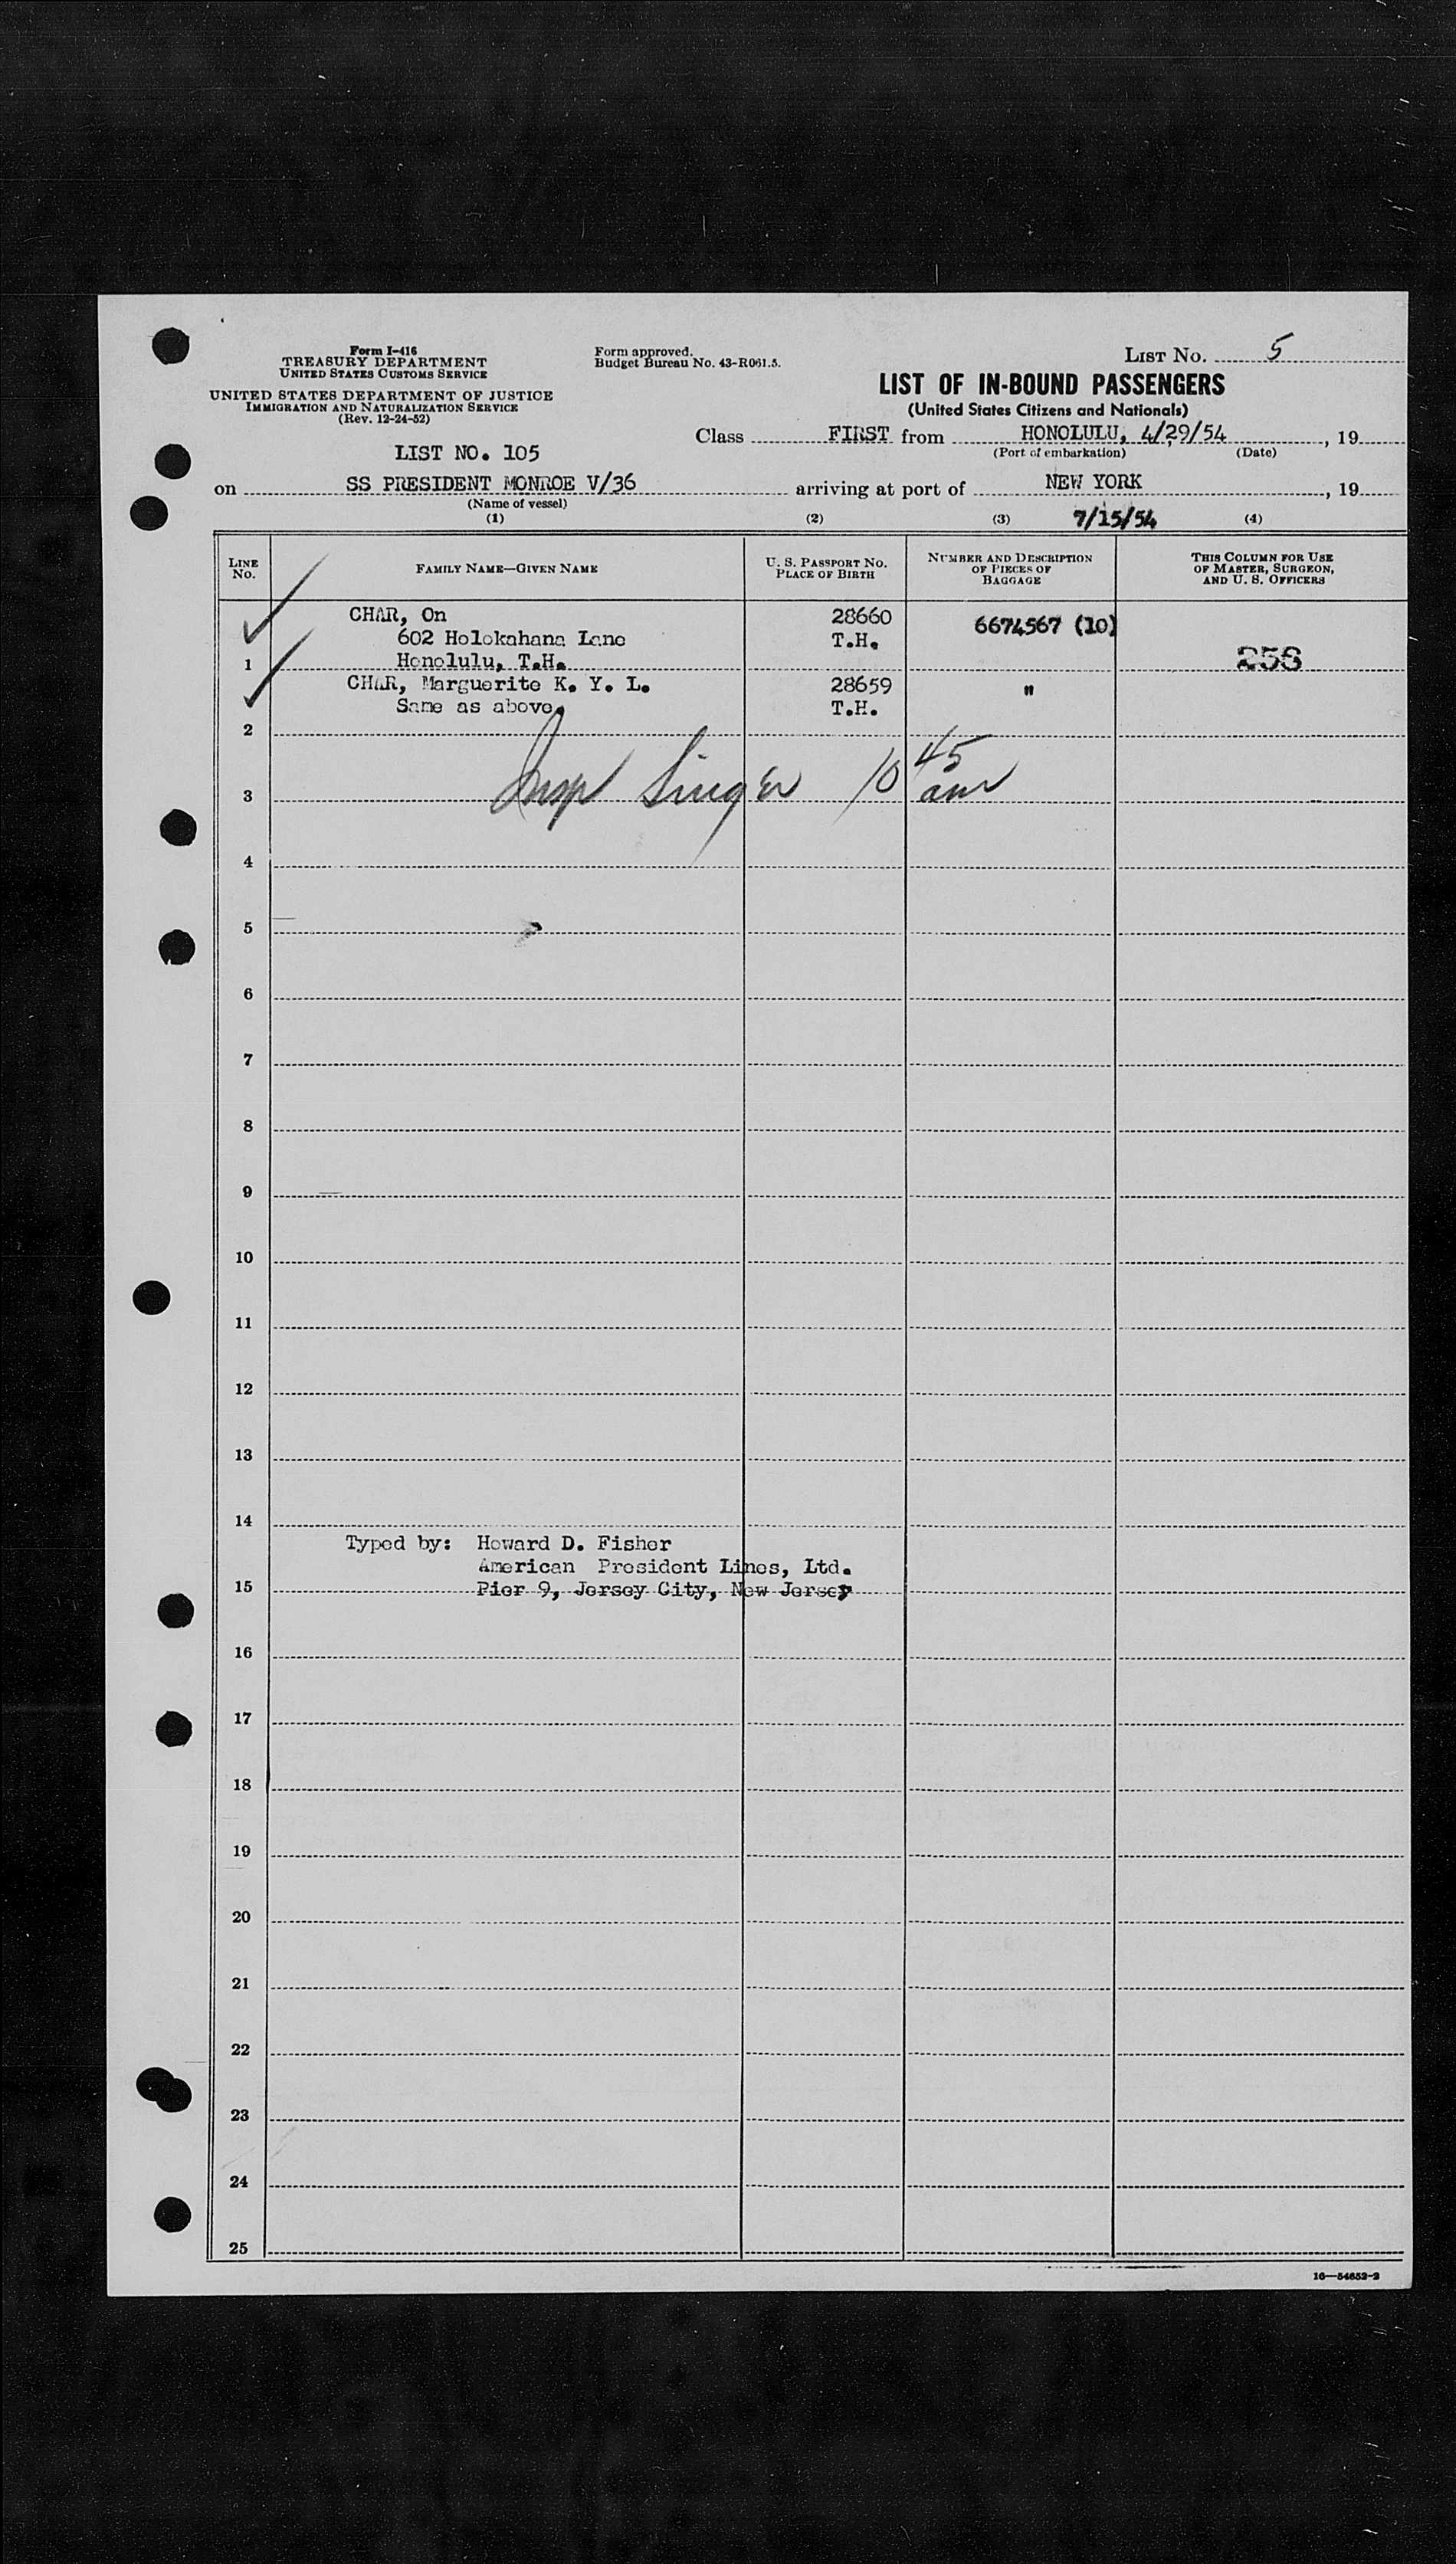 Form I-416
TREASURY DEPARTMENT
UNITED STATES CUSTOMS SERVICE
UNITED STATES DEPARTMENT OF JUSTICE
IMMIGRATION AND NATURALIZATION SERVICE
(Rev. 12-24-52)
LIST NO. 105
Form approved.
Budget Bureau No. 43-R061.5.
LIST No. 5
LIST OF IN-BOUND PASSENGERS
(United States Citizens and Nationals)
Class FIRST from HONOLULU, 4/29/54, 19
(Port of embarkation) (Date)
on SS PRESIDENT MONROE V/36 arriving at port of NEW YORK, 19
(Name of vessel)
7/15/54
(1) (2) (3) (4)
LINE No. FAMILY NAME—GIVEN NAME U. S. PASSPORT No. PLACE OF BIRTH NUMBER AND DESCRIPTION OF PIECES OF BAGGAGE THIS COLUMN FOR USE OF MASTER, SURGEON, AND U. S. OFFICERS
CHAR, On 28660 6674567 (10)
602 Holokahana Lane T.H.
1 Honolulu, T.H. 256
CHAR, Marguerite K. Y. L. 28659 "
Same as above. T.H.
2
Insp Singer 10 45 am
3
4
5
6
7
8
9
10
11
12
13
14
Typed by: Howard D. Fisher
American President Lines, Ltd.
15 Pier 9, Jersey City, New Jersey
16
17
18
19
20
21
22
23
24
25
16—54652-2